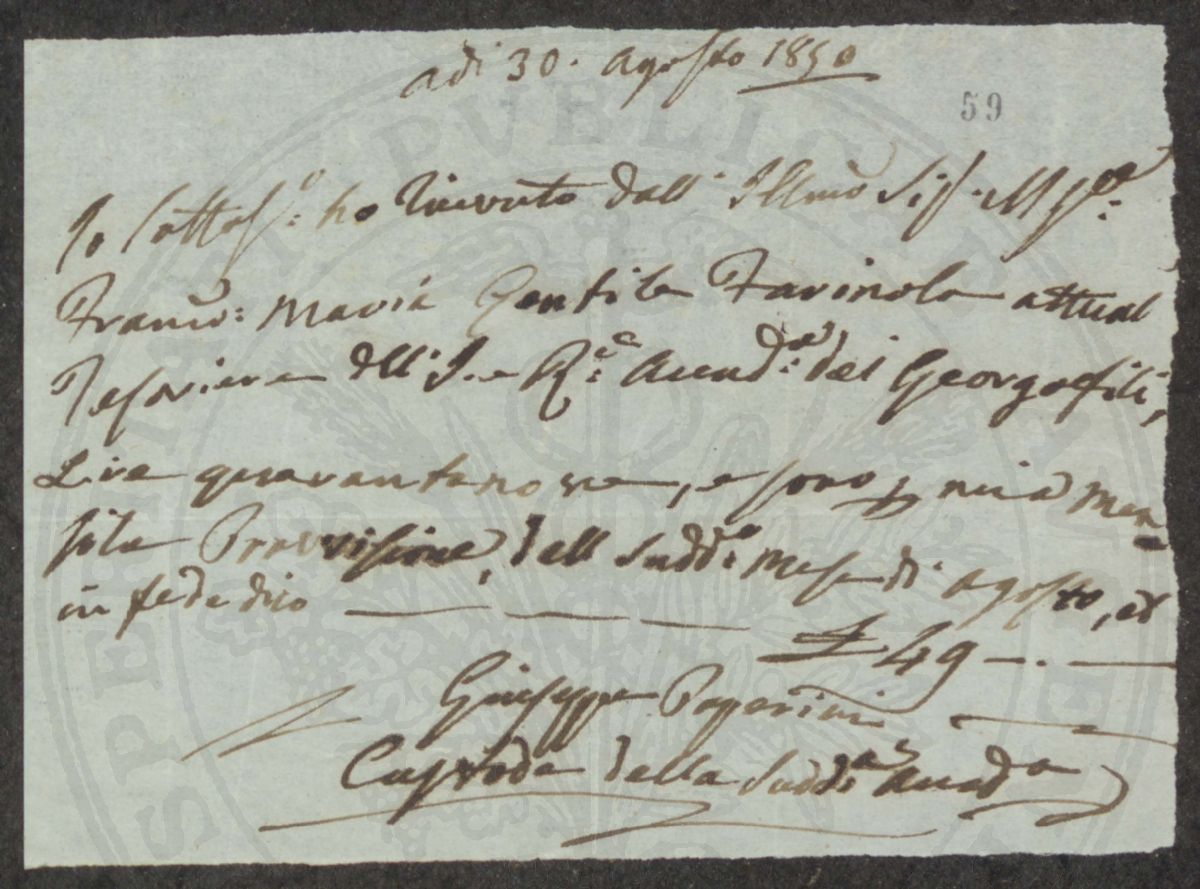 adì 30. Agosto 1850
59
Io sottosº: ho ricevuto dall' Illmo Sig. M
Franco: Maria Gentile Farinola attual
Tesoriere dell' I. e R.e Accad.a dei Georgofili,
Lire quarantanove, e sono p mia Men
sile Provvisione, dell sudd.o Mese di agosto, et
in fede dico
£ 49 —.—
Giuseppe Paperini
Custode della Sudd.a Accad.a
PUBLICAE